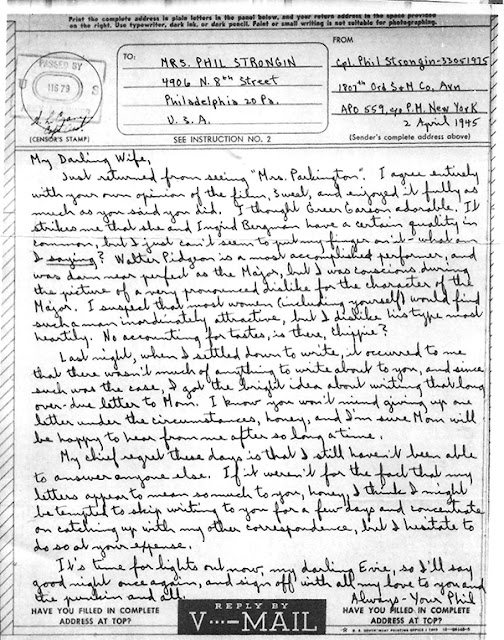 Print the complete address in plain letters in the panel below, and your return address in the space provided
on the right. Use typewriter, dark ink, or dark pencil. Faint or small writing is not suitable for photographing.
PASSED BY
U S
11679
(CENSOR'S STAMP)
TO:
MRS. PHIL STRONGIN
4906 N. 8th Street
Philadelphia 20 Pa.
U.S.A.
SEE INSTRUCTION NO. 2
FROM
Cpl. Phil Strongin-33051975
1807th Ord S&M Co. Avn
APO 559, c/o P.M. New York
2 April 1945
(Sender's complete address above)
My Darling Wife,
Just returned from seeing "Mrs. Parkington". I agree entirely
with your own opinion of the film, Sweet, and enjoyed it fully as
much as you said you did. I thought Greer Garson adorable. It
strikes me that she and Ingrid Bergman have a certain quality in
common, but I just can't seem to put my finger on it - what am
I saying? Walter Pidgeon is a most accomplished performer, and
was damn near perfect as the Major, but I was conscious during
the picture of a very pronounced dislike for the character of the
Major. I suspect that most women (including yourself) would find
such a man inordinately attractive, but I dislike his type most
heartily. No accounting for tastes, is there, Chippie?
Last night, when I settled down to write, it occurred to me
that there wasn't much of anything to write about to you, and since
such was the case, I got the bright idea about writing that long
over-due letter to Mom. I know you won't mind giving up one
letter under the circumstances, honey, and I'm sure Mom will
be happy to hear from me after so long a time.
My chief regret these days is that I still haven't been able
to answer anyone else. If it weren't for the fact that my
letters appear to mean so much to you, honey, I think I might
be tempted to skip writing to you for a few days and concentrate
on catching up with my other correspondence, but I hesitate to
do so at your expense.
It's time for lights out now, my darling Evie, so I'll say
good night once again, and sign off with all my love to you and
the punkin and all.
Always - Your Phil
HAVE YOU FILLED IN COMPLETE
ADDRESS AT TOP?
REPLY BY
V···—MAIL
HAVE YOU FILLED IN COMPLETE
ADDRESS AT TOP?